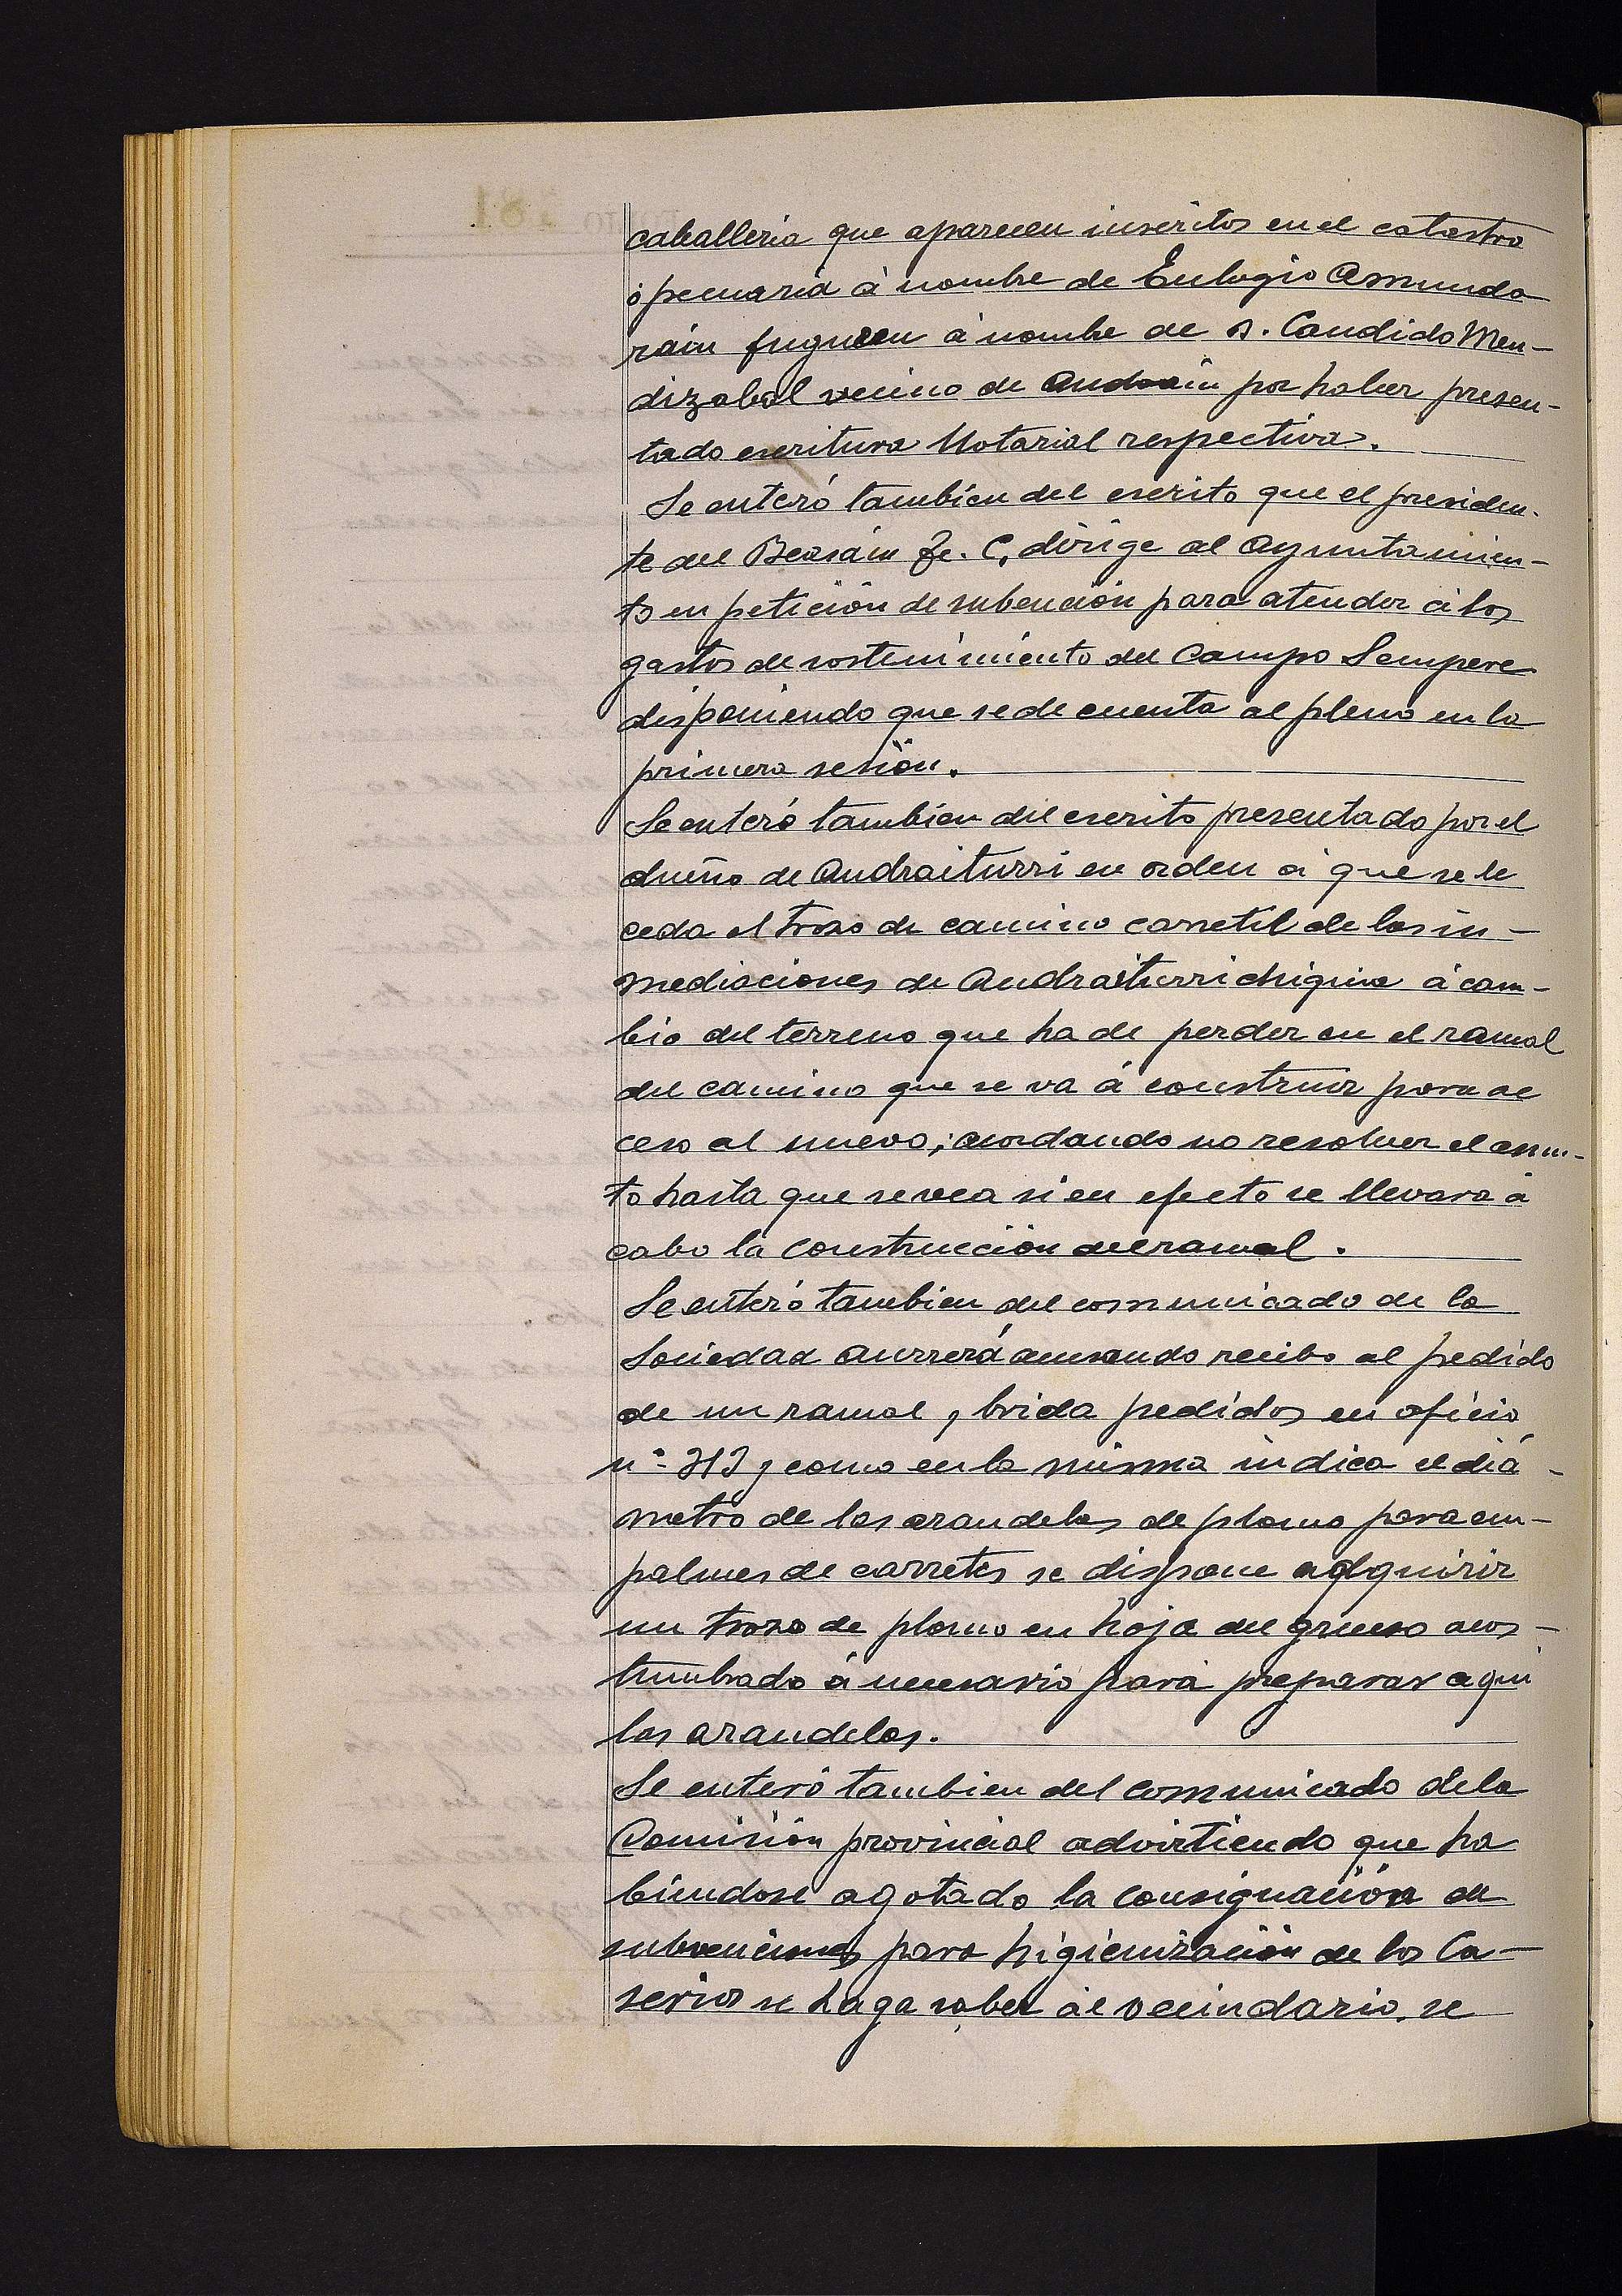 caballeria que aparecen inscritos en el catastro
ó pecuaria á nombre de Eulogio Amunda
rain fugueen á nombre de D. Candido Men-
dizabal vecino de Andoain por haber presen-
tado escritura Notarial respectiva.
Se enteró tambien del escrito que el presiden-
te del Beasáin F. C, dirige al Ayuntamien-
to en petición de subención para atender á los
gastos de sostenimiento del Campo Sempere
disponiendo que se de cuenta al pleno en la
primera sesión.
Se enteró tambien del escrito presentado por el
dueño de Andraiturri en orden á que se le
ceda el trozo de camino carretil de las in-
mediaciones de Andraiturrichiquia á cam-
bio del terreno que ha de perder en el ramal
del camino que se va á construir para ac
ceso al nuevo; acordando no resolver el asun-
to hasta que se vea si en efecto se llevara á
cabo la construcción del ramal.
Se enteró tambien del comunicado de la
Sociedad Aurrerá acusando recibo al pedido
de un ramal y brida pedidos en oficio
nº 313 y como en la misma indica el diá-
metro de las arandelas de plomo para em-
palmes de carretes se dispone adquirir
un trozo de plomo en hoja del grueso acos-
tumbrado ó necesario para preparar aqui
las arandelas.
Se enteró tambien del comunicado de la
Comisión provincial advirtiendo que ha
biendose agotado la consignación de
subvenciones para higienización de los Ca-
serios se haga saber al vecindario. se